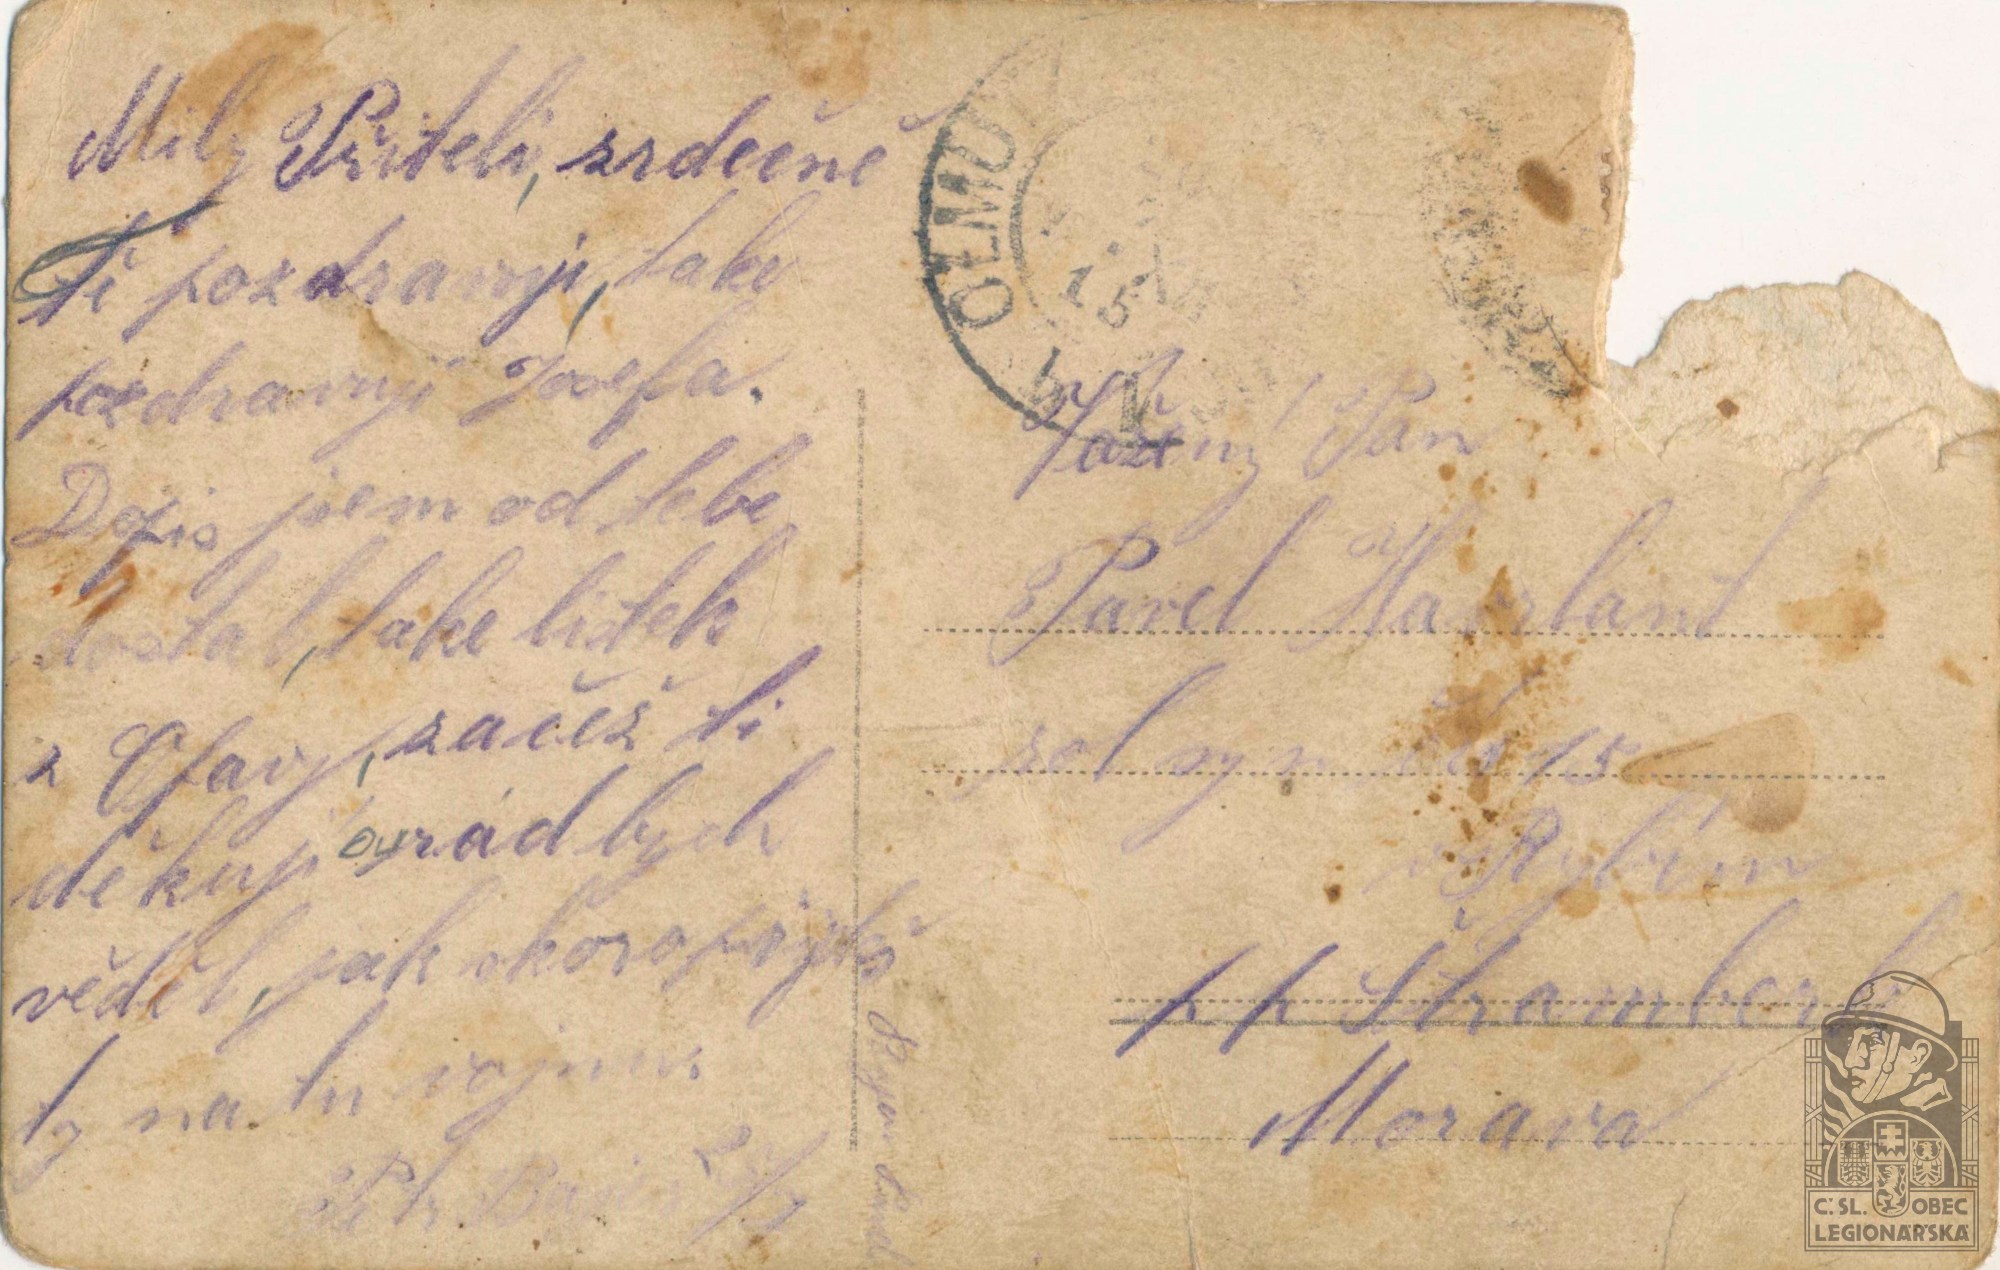 Milý Příteli, srdečně
ti pozdravuji, take
pozdravuji Josefa.
Dopis jsem od tebe
dostal, take lístek
z Opavy, začež ti
děkuji rád bych
věděl, jak skoro
ty na tu vojnu
OLMÜ
15
Važený Pan
Pavel Havrlant
čís 15
v Rybím
p p Štramberk
Morava
Č. SL. OBEC
LEGIONÁŘSKÁ